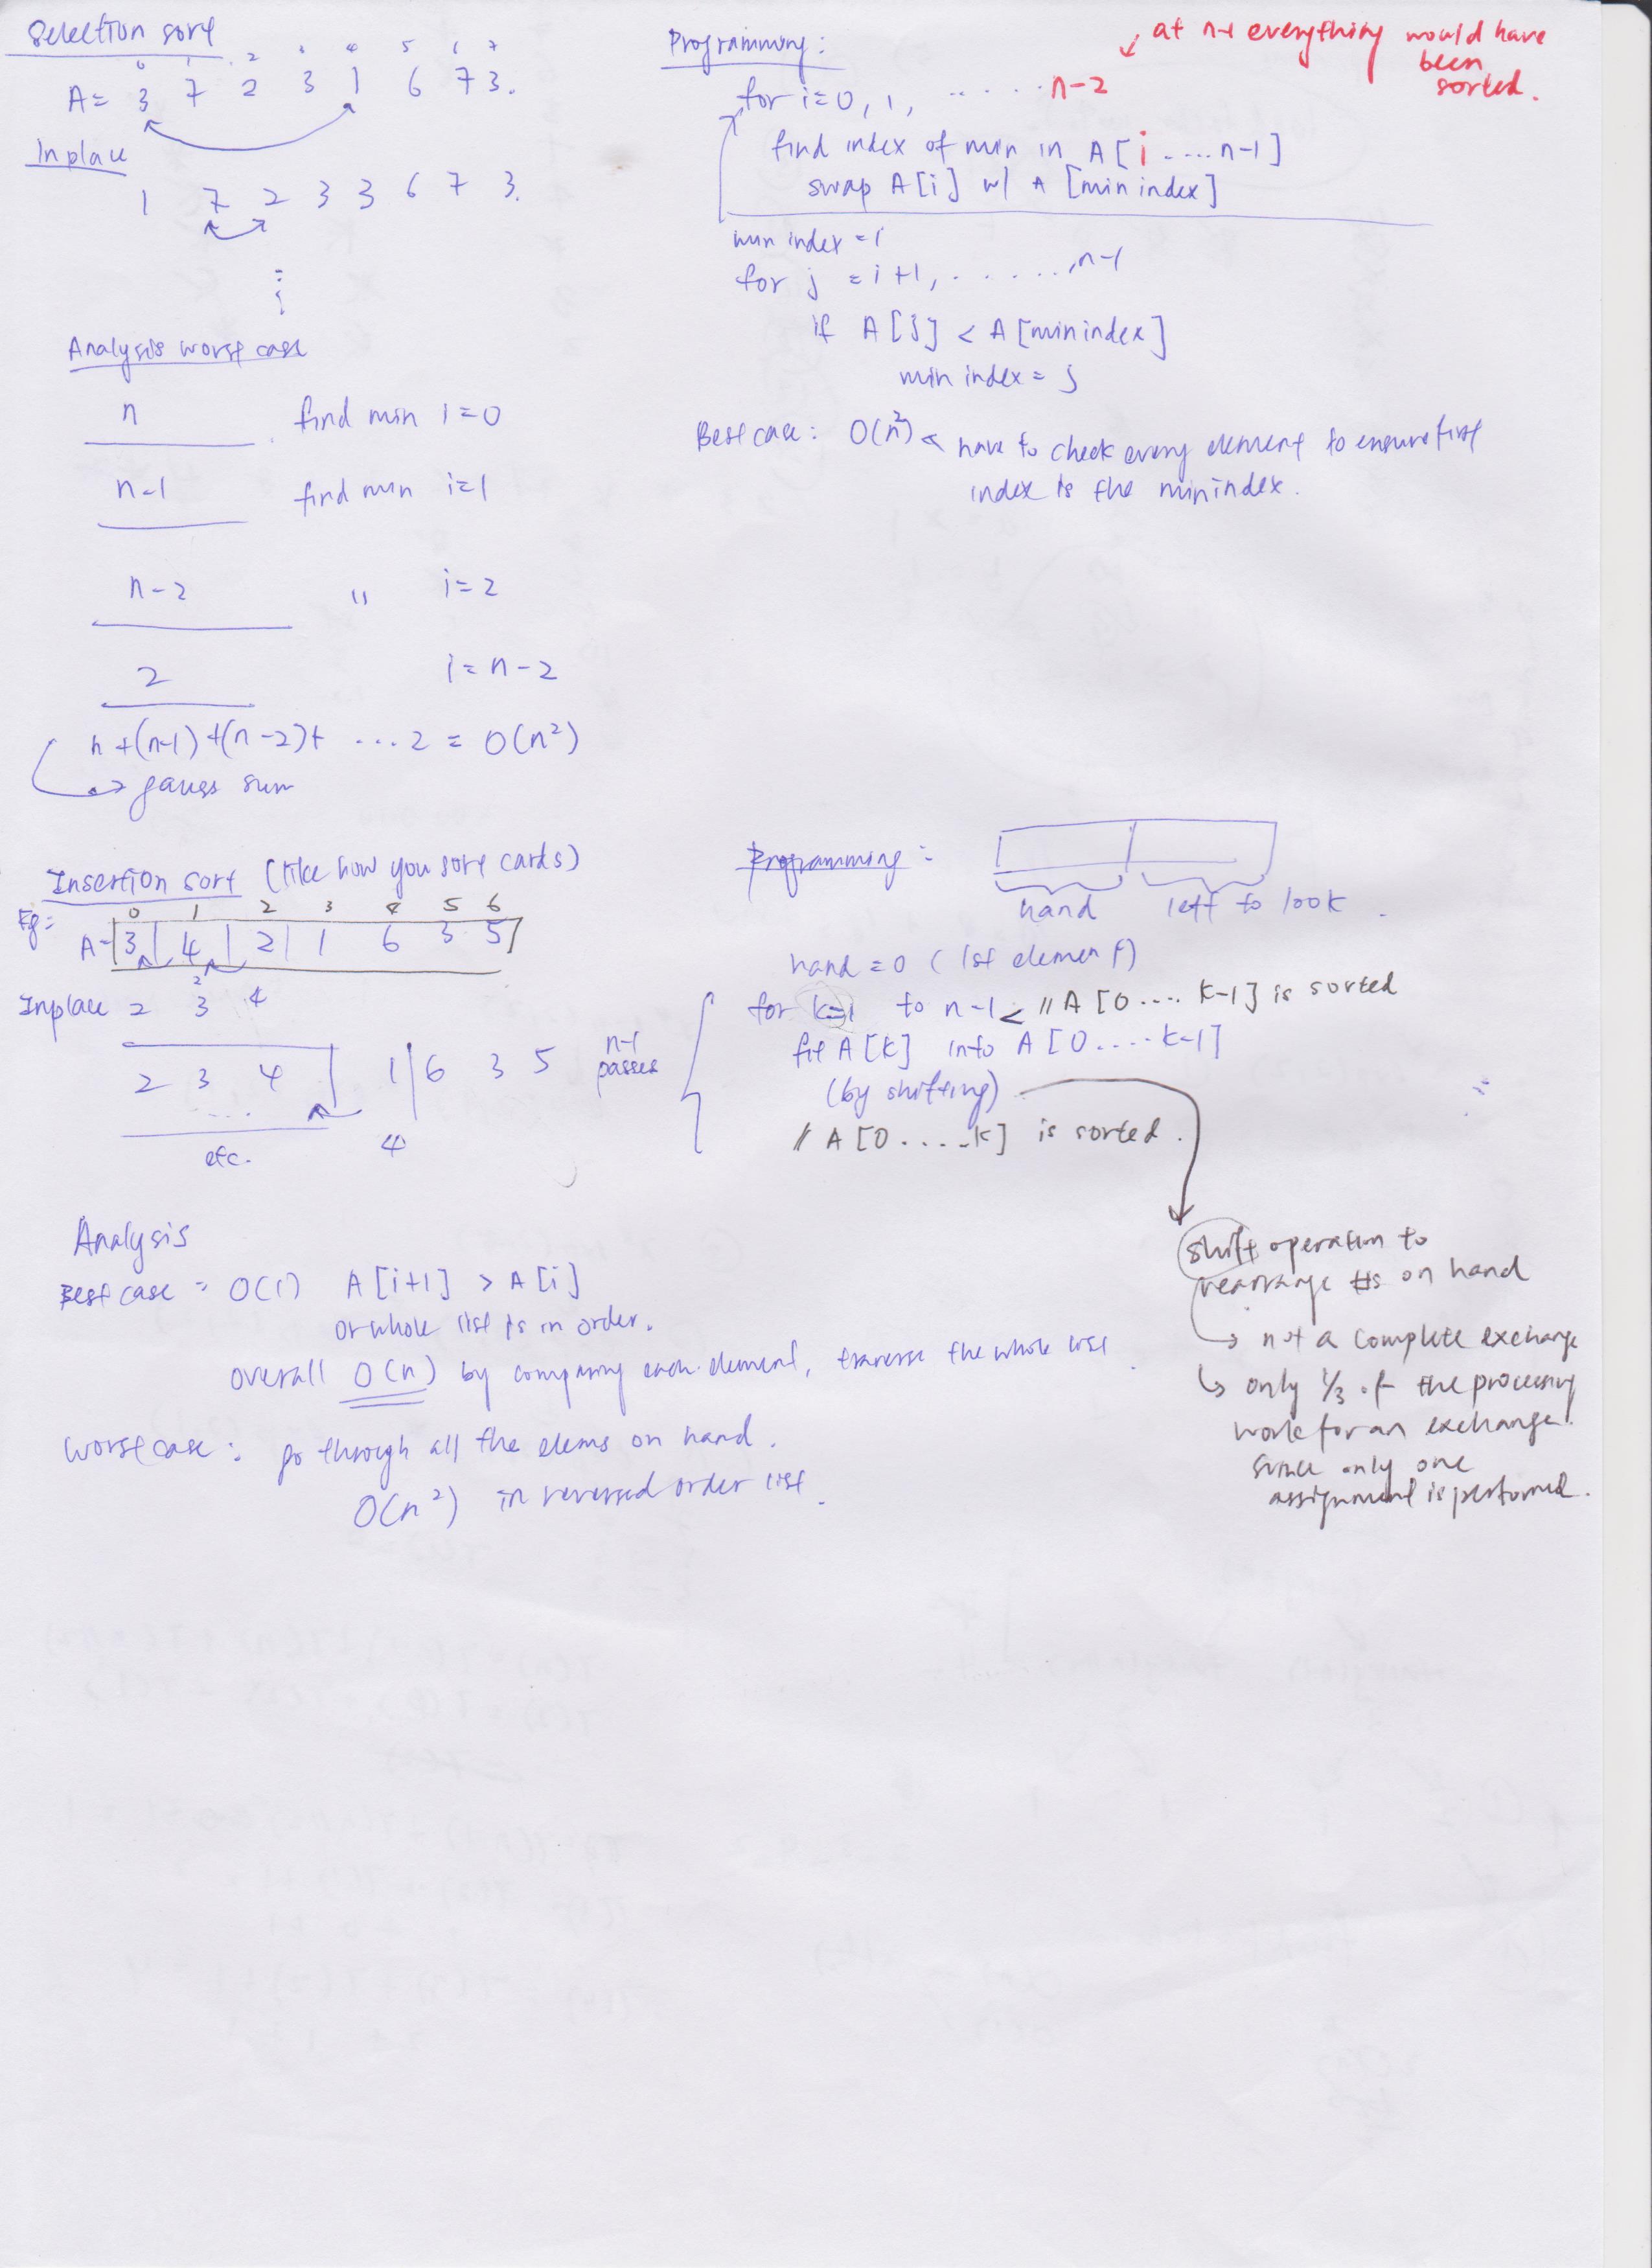 Selection sort
0 1 2 3 4 5 6 7
A = 3 7 2 3 1 6 7 3.
Inplace
1 7 2 3 3 6 7 3.
Analysis worst case
n find min i=0
n-1 find min i=1
n-2 " i=2
2 i=n-2
n+(n-1)+(n-2)+ ...2 = O(n²)
→ gauss sum
Programming:
at n-1 everything would have
been
sorted.
for i=0, 1, ..... n-2
find index of min in A[i.....n-1]
swap A[i] w/ A [min index]
min index = i
for j = i+1, ......, n-1
if A[j] < A[min index]
min index = j
Best case: O(n²) < have to check every element to ensure first
index is the min index.
Insertion sort (like how you sort cards)
Eg:
0 1 2 3 4 5 6
A= 3 4 2 1 6 3 5
2
Inplace 2 3 4
2 3 4 1 6 3 5
n-1
passes
....
4
etc.
Programming:
hand left to look.
hand = 0 (1st element)
for k=1 to n-1 < // A [0....k-1] is sorted
fit A[k] into A [0....k-1]
(by shifting)
// A [0.....k] is sorted.
shift operation to
rearrange #s on hand
→ not a complete exchange
↳ only 1/3 of the processing
work for an exchange.
since only one
assignment is performed.
Analysis
Best case = O(1) A[i+1] > A[i]
or whole list is in order.
overall O(n) by comparing each element, traverse the whole list.
worst case: go through all the elems on hand.
O(n²) in reversed order list.